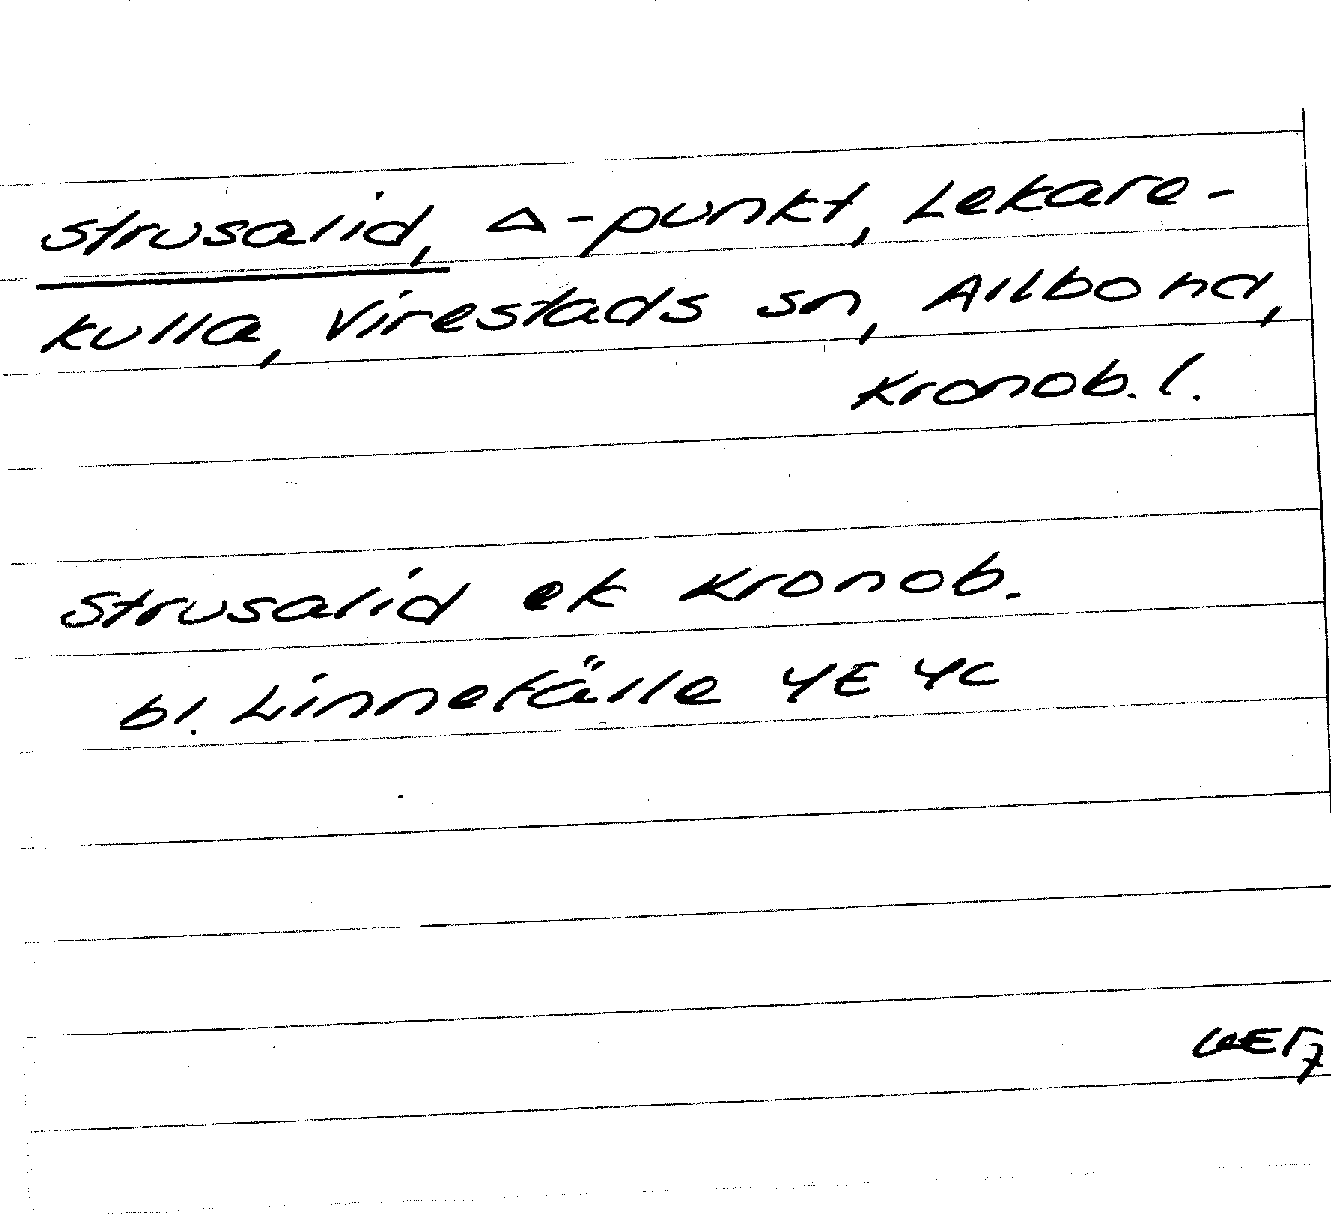 Strusalid, Δ-punkt, Lekare-
kulla, Virestads sn, Allbo hd,
Kronob. l.
Strusalid ek Kronob.
bl. Linnefälle 4E 4c